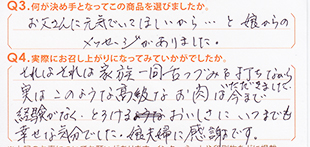 Q3.何が決め手となってこの商品を選びましたか。
お父さんに元気でいてほしいから…と娘からの
メッセージがありました。
Q4.実際にお召し上がりになってみていかがでしたか。
それはそれは家族一同舌つづみを打ちながら
実はこのような高級なお肉は今まで
いただきまして
経験がなく、とろけるおいしさに いつまでも
幸せな気分でした。娘夫婦に感謝です。